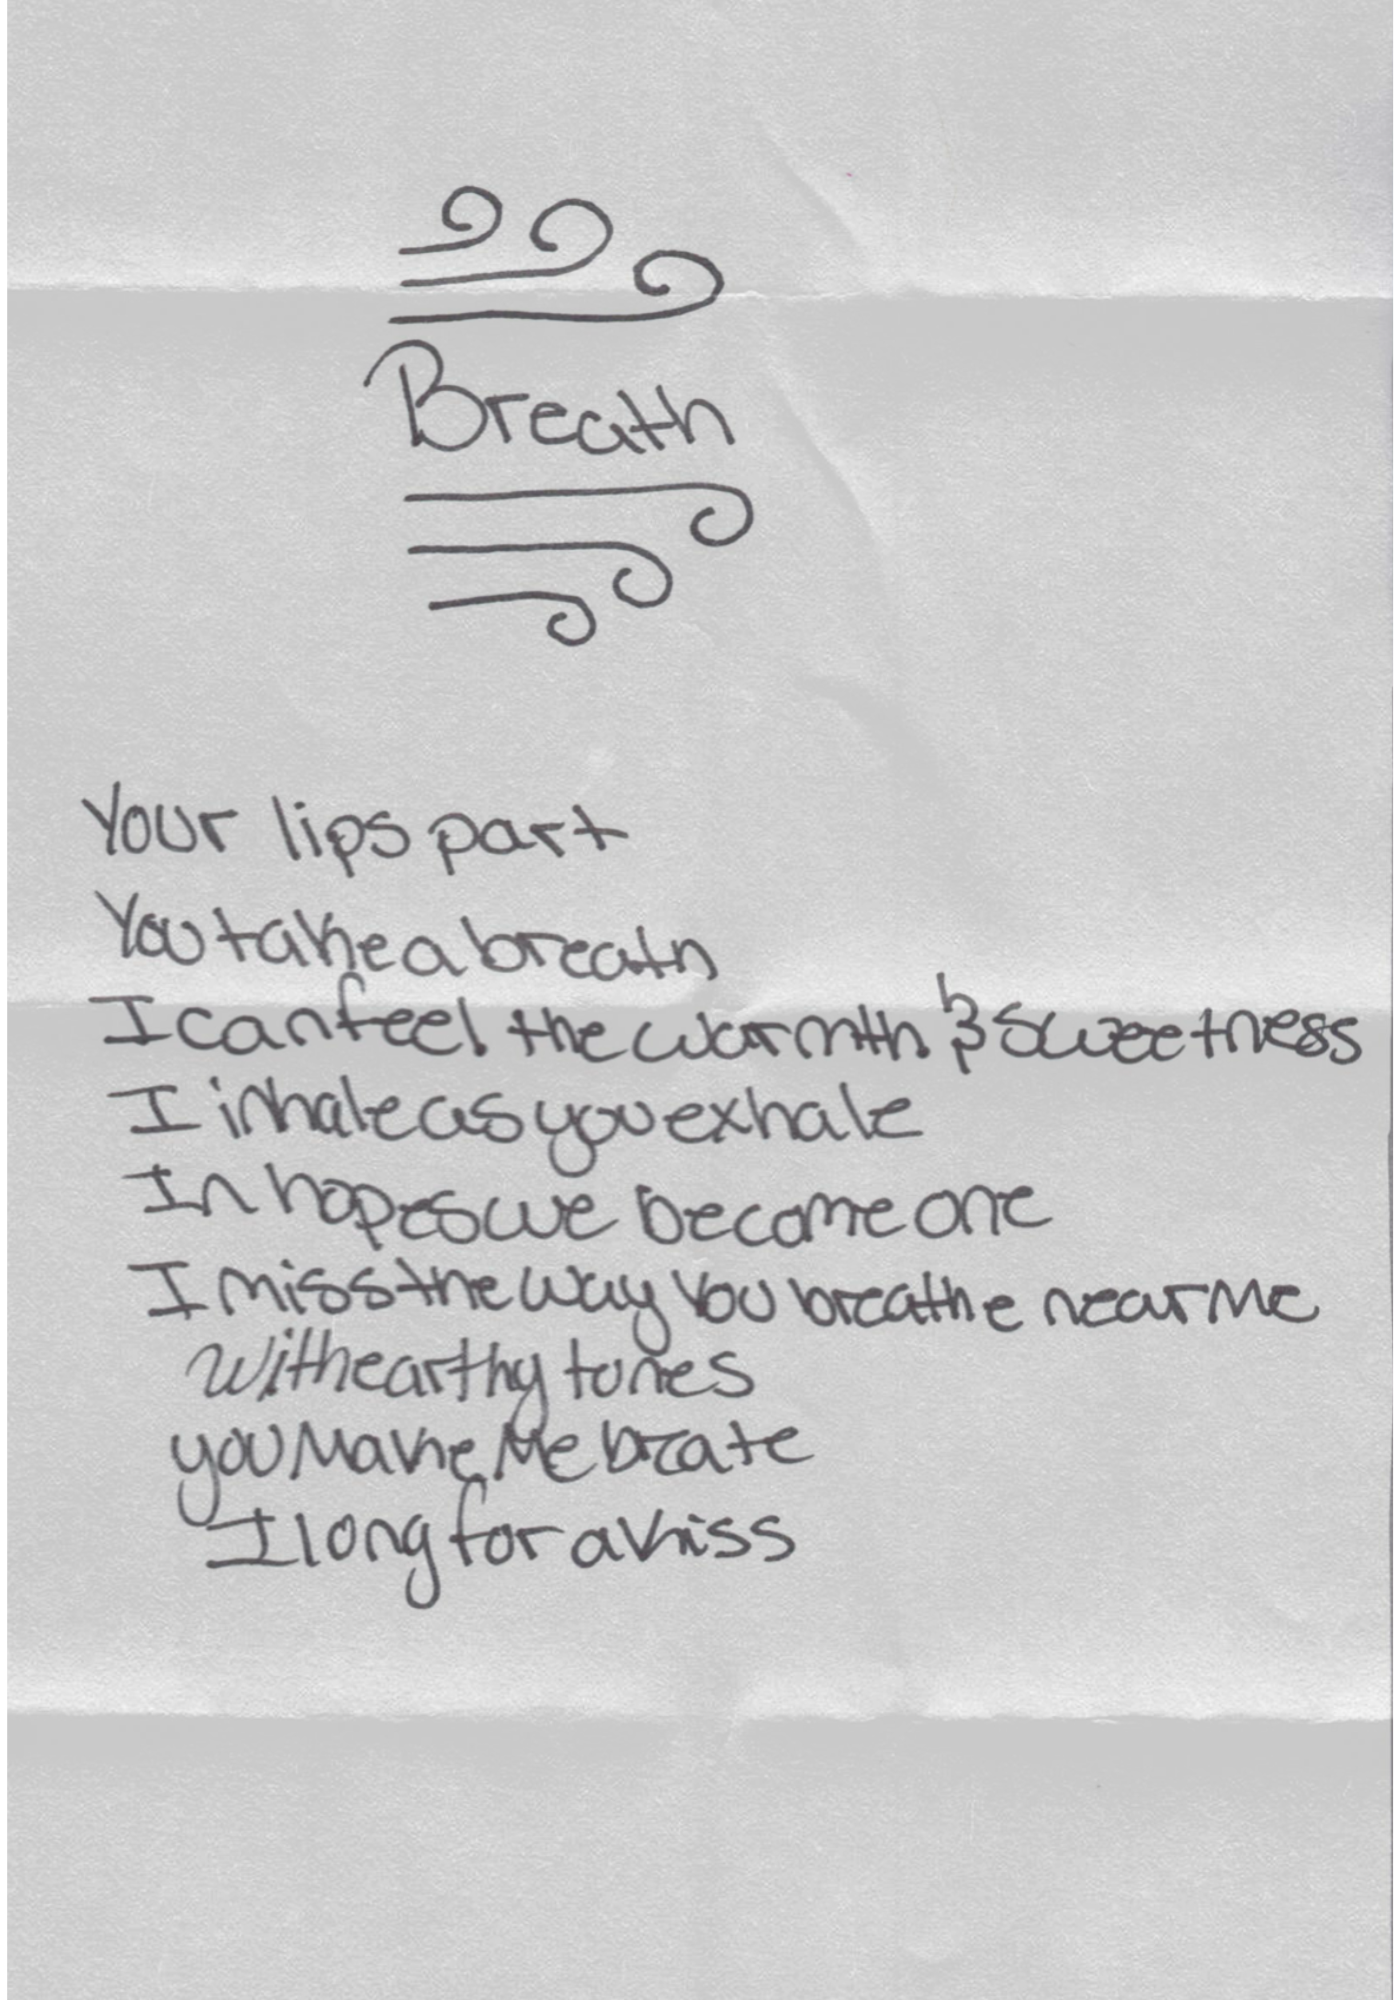 Breath
Your lips part
You take a breath
I can feel the warmth & sweetness
I inhale as you exhale
In hopes we become one
I miss the way you breathe near me
With earthy tones
you make me
I long for a kiss